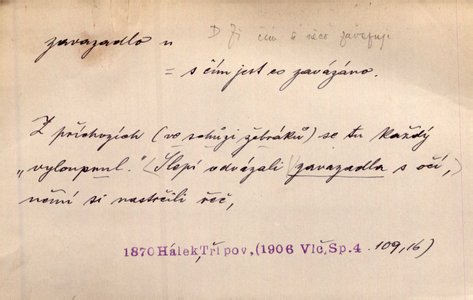 zavazadlo n D Ji čím si něco zavazuji
= s čím jest co zavázáno.
Z příchozích (ve schůzi žebráků) se tu každý
„vyloupnul." (Slepí odvázali (zavazadla s očí,)
němí si nastrčili řeč,
1870 Hálek,Tři pov.,(1906 Vlč,Sp.4 109,16)